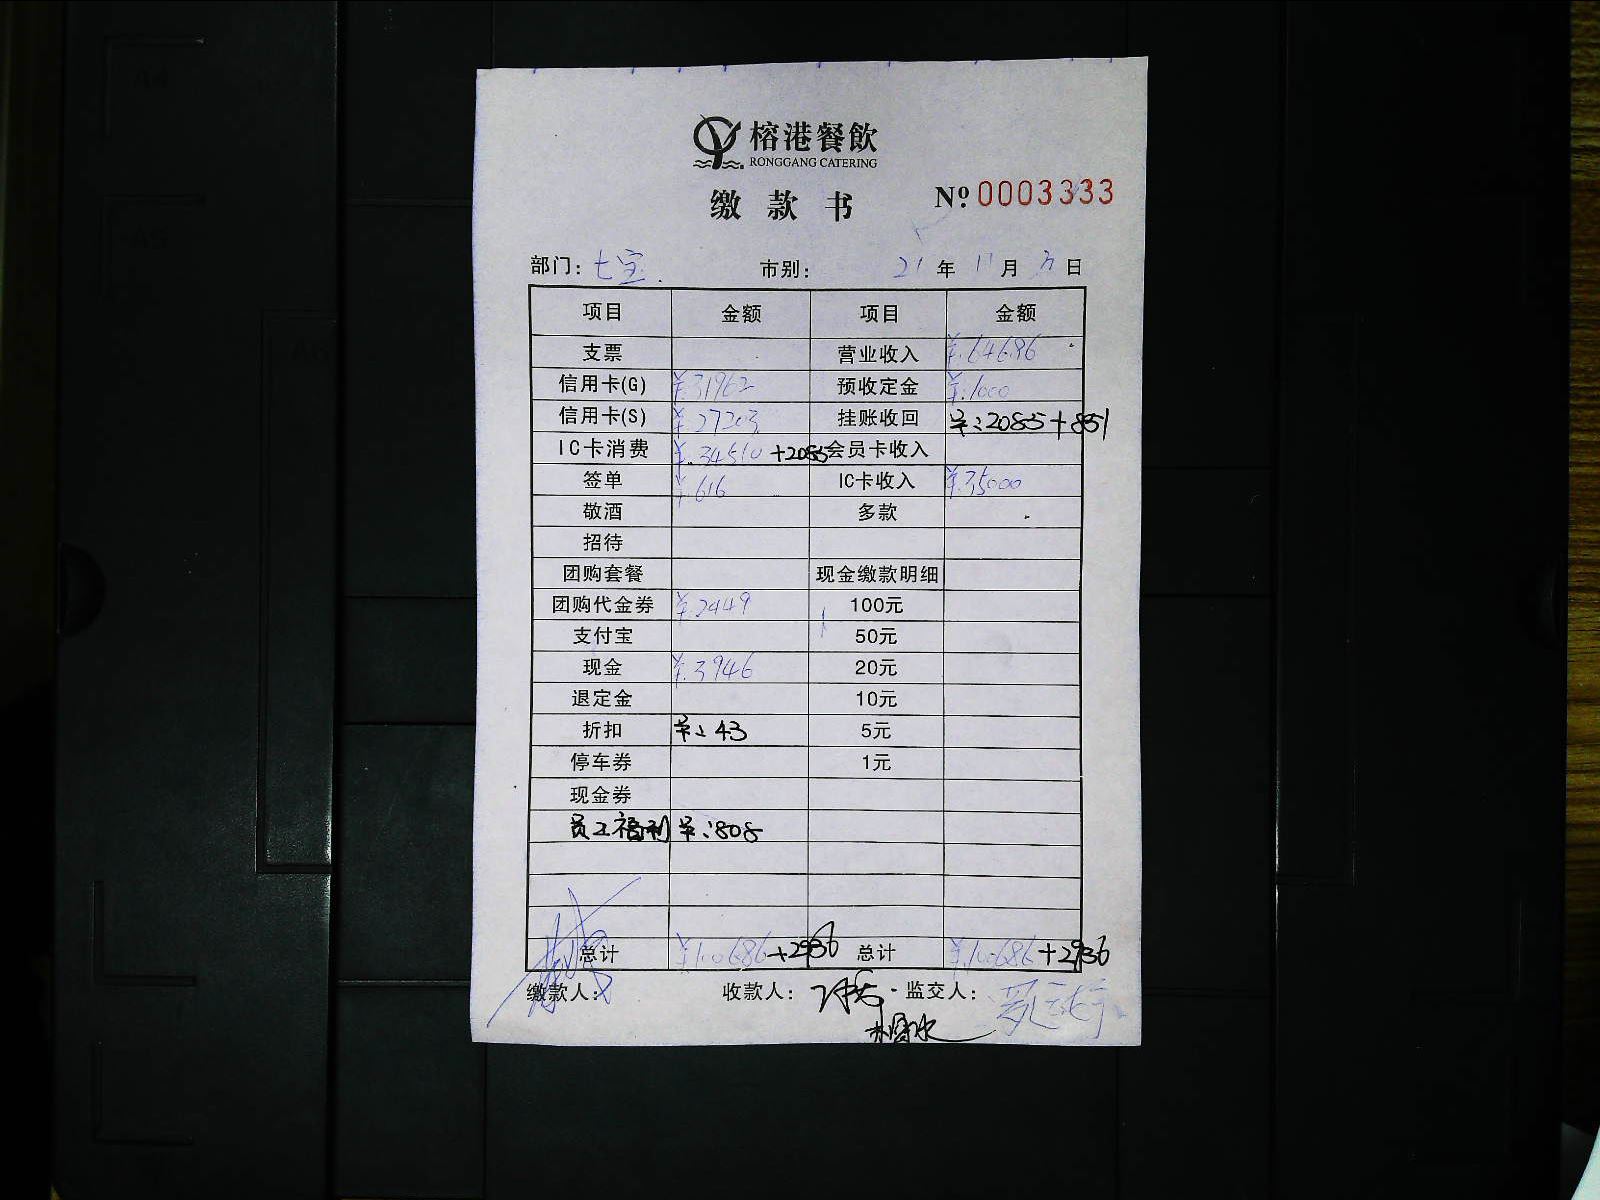 榕港餐飲
RONGGANG CATERING
缴款书 Nº 0003333
部门: 七宝 市别: 21 年 11 月 日
项目 金额 项目 金额
支票 营业收入 ¥:64686
信用卡(G) ¥:31962 预收定金 ¥:1000
信用卡(S) ¥:27203 挂账收回 ¥:2085+851
IC卡消费 ¥:34510+2085 会员卡收入
签单 ¥:616 IC卡收入 ¥:35000
敬酒 多款
招待
团购套餐 现金缴款明细
团购代金券 ¥:2449 100元
支付宝 50元
现金 ¥:3946 20元
退定金 10元
折扣 ¥:43 5元
停车券 1元
现金券
员工福利 ¥:808
总计 ¥:100686+2936 总计 ¥:100686+2936
缴款人: 收款人: 监交人: